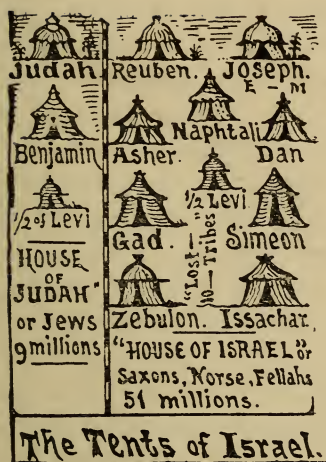 Judah
Benjamin
½ of Levi
HOUSE
OF
JUDAH"
or Jews
9 millions
Reuben. Joseph.
E - M
Naphtali
Asher. Dan
½ Levi
Gad. Simeon
"Lost"
10 - Tribes
Zebulon. Issachar.
"HOUSE OF ISRAEL" or
Saxons, Norse, Fellahs
51 millions.
The Tents of Israel.